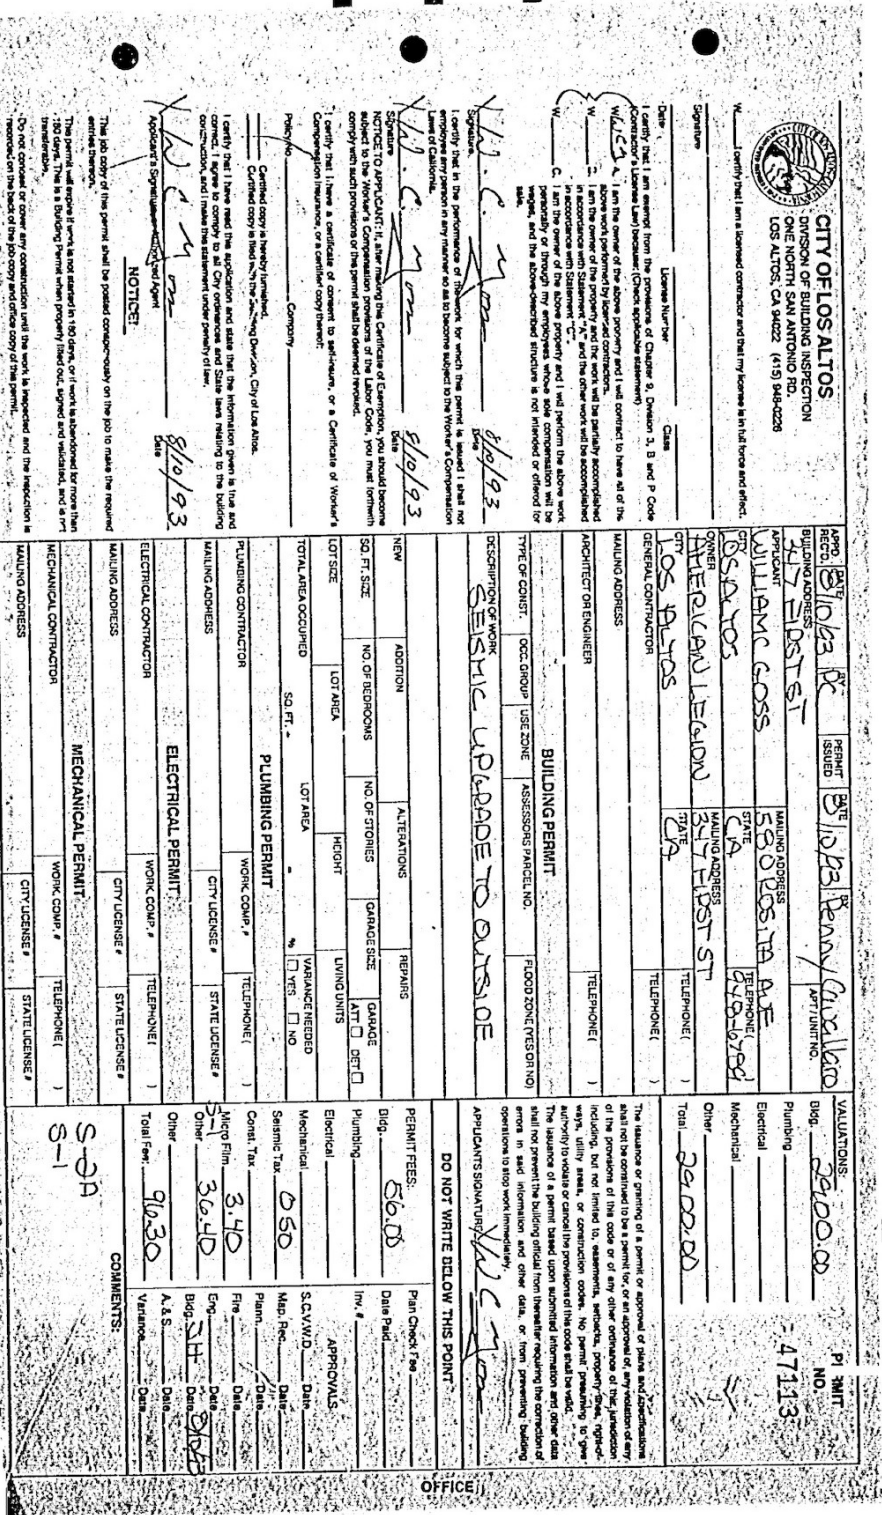 CITY OF LOS ALTOS
DIVISION OF BUILDING INSPECTION
ONE NORTH SAN ANTONIO RD.
LOS ALTOS, CA 94022 (415) 948-0226
W I certify that I am a licensed contractor and that my license is in full force and effect.
Signature
Date License Number Class
I certify that I am exempt from the provisions of Chapter 9, Division 3, B and P Code
(Contractor's License Law) because: (Check applicable statement)
A. I am the owner of the above property and I will contract to have all of the
above work performed by licensed contractors.
W I am the owner of the property and the work will be partially accomplished
in accordance with Statement "A" and the other work will be accomplished
in accordance with Statement "C".
W C. I am the owner of the above property and I will perform the above work
personally or through my employees whose sole compensation will be
wages, and the above-described structure is not intended or offered for
sale.
Signature Date 8/10/93
I certify that in the performance of the work for which this permit is issued I shall not
employee any person in any manner so as to become subject to the Worker's Compensation
Laws of California.
Signature Date 8/10/93
NOTICE TO APPLICANT: If, after making this Certificate of Exemption, you should become
subject to the Worker's Compensation provisions of the Labor Code, you must forthwith
comply with such provisions or this permit shall be deemed revoked.
I certify that I have a certificate of consent to self-insure, or a Certificate of Worker's
Compensation Insurance, or a certified copy thereof:
Policy No. Company
Certified copy is hereby furnished.
Certified copy is filed with the Building Division, City of Los Altos.
I certify that I have read this application and state that the information given is true and
correct. I agree to comply to all City ordinances and State laws relating to the building
construction, and I make this statement under penalty of law.
Applicant's Signature Authorized Agent Date 8/10/93
NOTICE:
This job copy of this permit shall be posted conspicuously on the job to make the required
entries thereon.
This permit will expire if work is not started in 180 days, or if work is abandoned for more than
180 days. This is a Building Permit when properly filled out, signed and validated, and is not
transferable.
Do not conceal or cover any construction until the work is inspected and the inspection is
recorded on the back of the job copy and office copy of this permit.
APPD. RECD. DATE 8/10/93 BY PC PERMIT ISSUED DATE 8/10/93 BY Penny Cavallaro
BUILDING ADDRESS 347 FIRST ST APT / UNIT NO.
APPLICANT WILLIAM C GOSS MAILING ADDRESS 580 ROSITA AVE
CITY LOS ALTOS STATE CA TELEPHONE ( 948-6789
OWNER AMERICAN LEGION MAILING ADDRESS 347 FIRST ST
CITY LOS ALTOS STATE CA TELEPHONE ( )
GENERAL CONTRACTOR TELEPHONE ( )
MAILING ADDRESS
ARCHITECT OR ENGINEER TELEPHONE ( )
BUILDING PERMIT
TYPE OF CONST. OCC. GROUP USE ZONE ASSESSORS PARCEL NO. FLOOD ZONE (YES OR NO)
DESCRIPTION OF WORK
SEISMIC UPGRADE TO OUTSIDE
NEW ADDITION ALTERATIONS REPAIRS
SQ. FT. SIZE NO. OF BEDROOMS NO. OF STORIES GARAGE SIZE GARAGE ATT DET
LOT SIZE LOT AREA HEIGHT LIVING UNITS
TOTAL AREA OCCUPIED SQ. FT. ÷ LOT AREA = % VARIANCE NEEDED YES NO
PLUMBING PERMIT
PLUMBING CONTRACTOR WORK. COMP. # TELEPHONE ( )
MAILING ADDRESS CITY LICENSE # STATE LICENSE #
ELECTRICAL PERMIT
ELECTRICAL CONTRACTOR WORK. COMP. # TELEPHONE ( )
MAILING ADDRESS CITY LICENSE # STATE LICENSE #
MECHANICAL PERMIT
MECHANICAL CONTRACTOR WORK. COMP. # TELEPHONE ( )
MAILING ADDRESS CITY LICENSE # STATE LICENSE #
PERMIT NO.
47113
VALUATIONS:
Bldg. 2900.00
Plumbing
Electrical
Mechanical
Other
Total 2900.00
The issuance or granting of a permit or approval of plans and specifications
shall not be construed to be a permit for, or an approval of, any violation of any
of the provisions of this code or of any other ordinance of this jurisdiction
including, but not limited to, easements, setbacks, property lines, right-of-
ways, utility areas, or construction codes. No permit presuming to give
authority to violate or cancel the provisions of this code shall be valid.
The issuance of a permit based upon submitted information and other data
shall not prevent the building official from thereafter requiring the correction of
errors in said information and other data, or from preventing building
operations to stop work immediately.
APPLICANTS SIGNATURE
DO NOT WRITE BELOW THIS POINT
PERMIT FEES: Plan Check Fee
Bldg. 56.00 Date Paid
Plumbing Inv. #
Electrical APPROVALS
Mechanical S.C.V.W.D. Date
Seismic Tax 0 50 Map. Rec. Date
Const. Tax Plann. Date
Micro Film 3.40 Fire Date
S-1 Other 36.40 Eng. Date
Other Bldg. JH Date
Total Fee: 96.30 A. & S. Date
Variance Date
COMMENTS:
S-2A
S-1
OFFICE